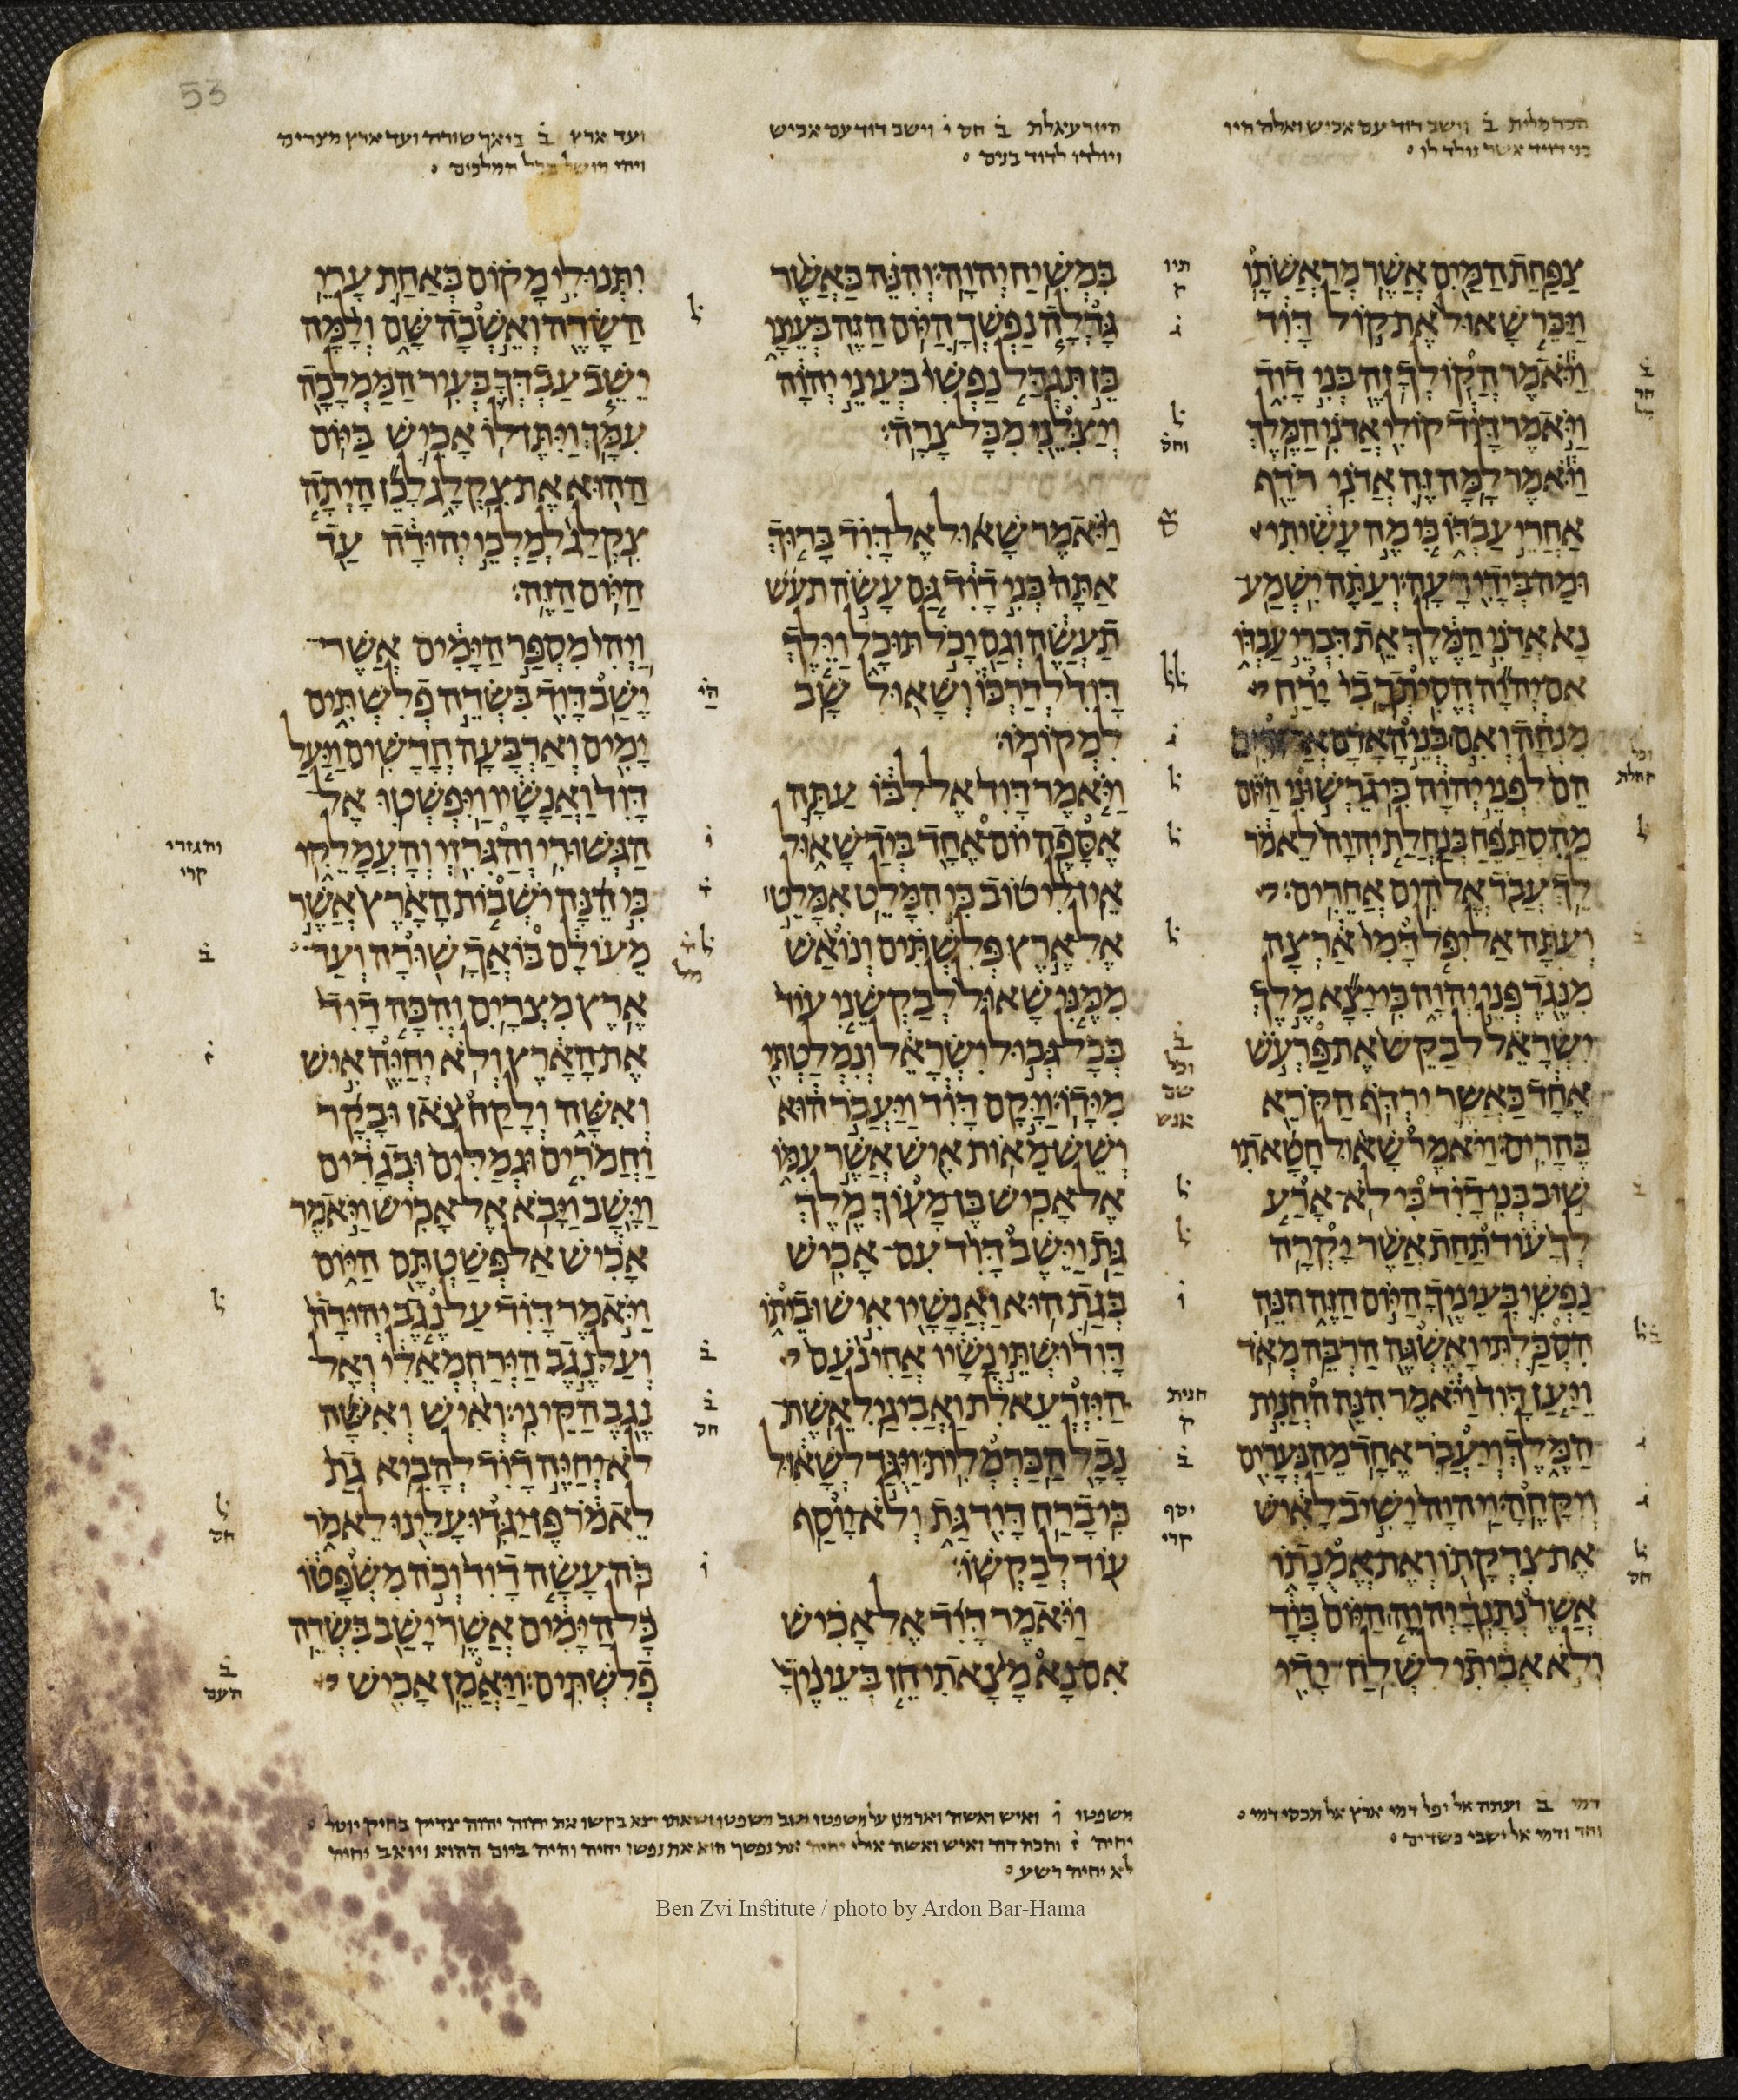 53
הכרמלית ב וישב דוד עם אכיש ואלה היו
בני דויד אשר נולד לו
היזרעאלת ב חס י וישב דוד עם אכיש
ויולדו לדוד בנים
ועד ארץ ב בואך שורה ועד ארץ מצרים
ויהי מושל בכל המלכים
צפחת המים אשר מראשתו
ויכר שאול את קול דוד
ויאמר הקולך זה בני דוד
ויאמר דוד קולי אדני המלך
ויאמר למה זה אדני רדף
אחרי עבדו כי מה עשיתי
ומה בידי רעה ועתה ישמע
נא אדני המלך את דברי עבדו
אם יהוה הסיתך בי ירח
מנחה ואם בני האדם ארורים
הם לפני יהוה כי גרשוני היום
מהסתפח בנחלת יהוה לאמר
לך עבד אלהים אחרים
ועתה אל יפל דמי ארצה
מנגד פני יהוה כי יצא מלך
ישראל לבקש את פרעש
אחד כאשר ירדף הקרא
בהרים ויאמר שאול חטאתי
שוב בני דוד כי לא ארע
לך עוד תחת אשר יקרה
נפשי בעיניך היום הזה הנה
הסכלתי ואשגה הרבה מאד
ויען דוד ויאמר הנה החנית
המלך ויעבר אחד מהנערים
ויקחה ויהוה ישיב לאיש
את צדקתו ואת אמנתו
אשר נתנך יהוה היום ביד
ולא אביתי לשלח ידי
במשיח יהוה והנה כאשר
גדלה נפשך היום הזה בעיני
כן תגדל נפשי בעיני יהוה
ויצלני מכל צרה
ויאמר שאול אל דוד ברוך
אתה בני דוד גם עשה תעש
תעשה וגם יכל תוכל וילך
דוד לדרכו ושאול שב
למקומו
ויאמר דוד אל לבו עתה
אספה יום אחד ביד שאול
אין לי טוב כי המלט אמלט
אל ארץ פלשתים ונואש
ממני שאול לבקשני עוד
בכל גבול ישראל ונמלטתי
מידו ויקם דוד ויעבר הוא
ושש מאות איש אשר עמו
אל אכיש בן מעוך מלך
גת וישב דוד עם אכיש
בגת הוא ואנשיו איש וביתו
דוד ושתי נשיו אחינעם
היזרעאלת ואביגיל אשת
נבל הכרמלית ויגד לשאול
כי ברח דוד גת ולא יוסף
עוד לבקשו
ויאמר דוד אל אכיש
אם נא מצאתי חן בעיניך
יתנו לי מקום באחת ערי
השדה ואשבה שם ולמה
ישב עבדך בעיר הממלכה
עמך ויתן לו אכיש ביום
ההוא את צקלג לכן היתה
צקלג למלכי יהודה עד
היום הזה
ויהי מספר הימים אשר
ישב דוד בשדה פלשתים
ימים וארבעה חדשים ויעל
דוד ואנשיו ויפשטו אל
הגשורי והגרזי והעמלקי
כי הנה ישבות הארץ אשר
מעולם בואך שורה ועד
ארץ מצרים והכה דוד
את הארץ ולא יחיה איש
ואשה ולקח צאן ובקר
וחמרים וגמלים ובגדים
וישב ויבא אל אכיש ויאמר
אכיש אל פשטתם היום
ויאמר דוד על נגב יהודה
ועל נגב הירחמאלי ואל
נגב הקיני ואיש ואשה
לא יחיה דוד להביא גת
לאמר פן יגדו עלינו לאמר
כה עשה דוד וכה משפטו
כל הימים אשר ישב בשדה
פלשתים ויאמן אכיש
והגזרי
קרי
יסף
קרי
חנית
דמי ב ועתה אל יפל דמי ארץ אל תכסי דמי
וחד ודמי אל ישבי כשדים
משפטו
יחיה
לא יחיה רשע
Ben Zvi Institute / photo by Ardon Bar-Hama